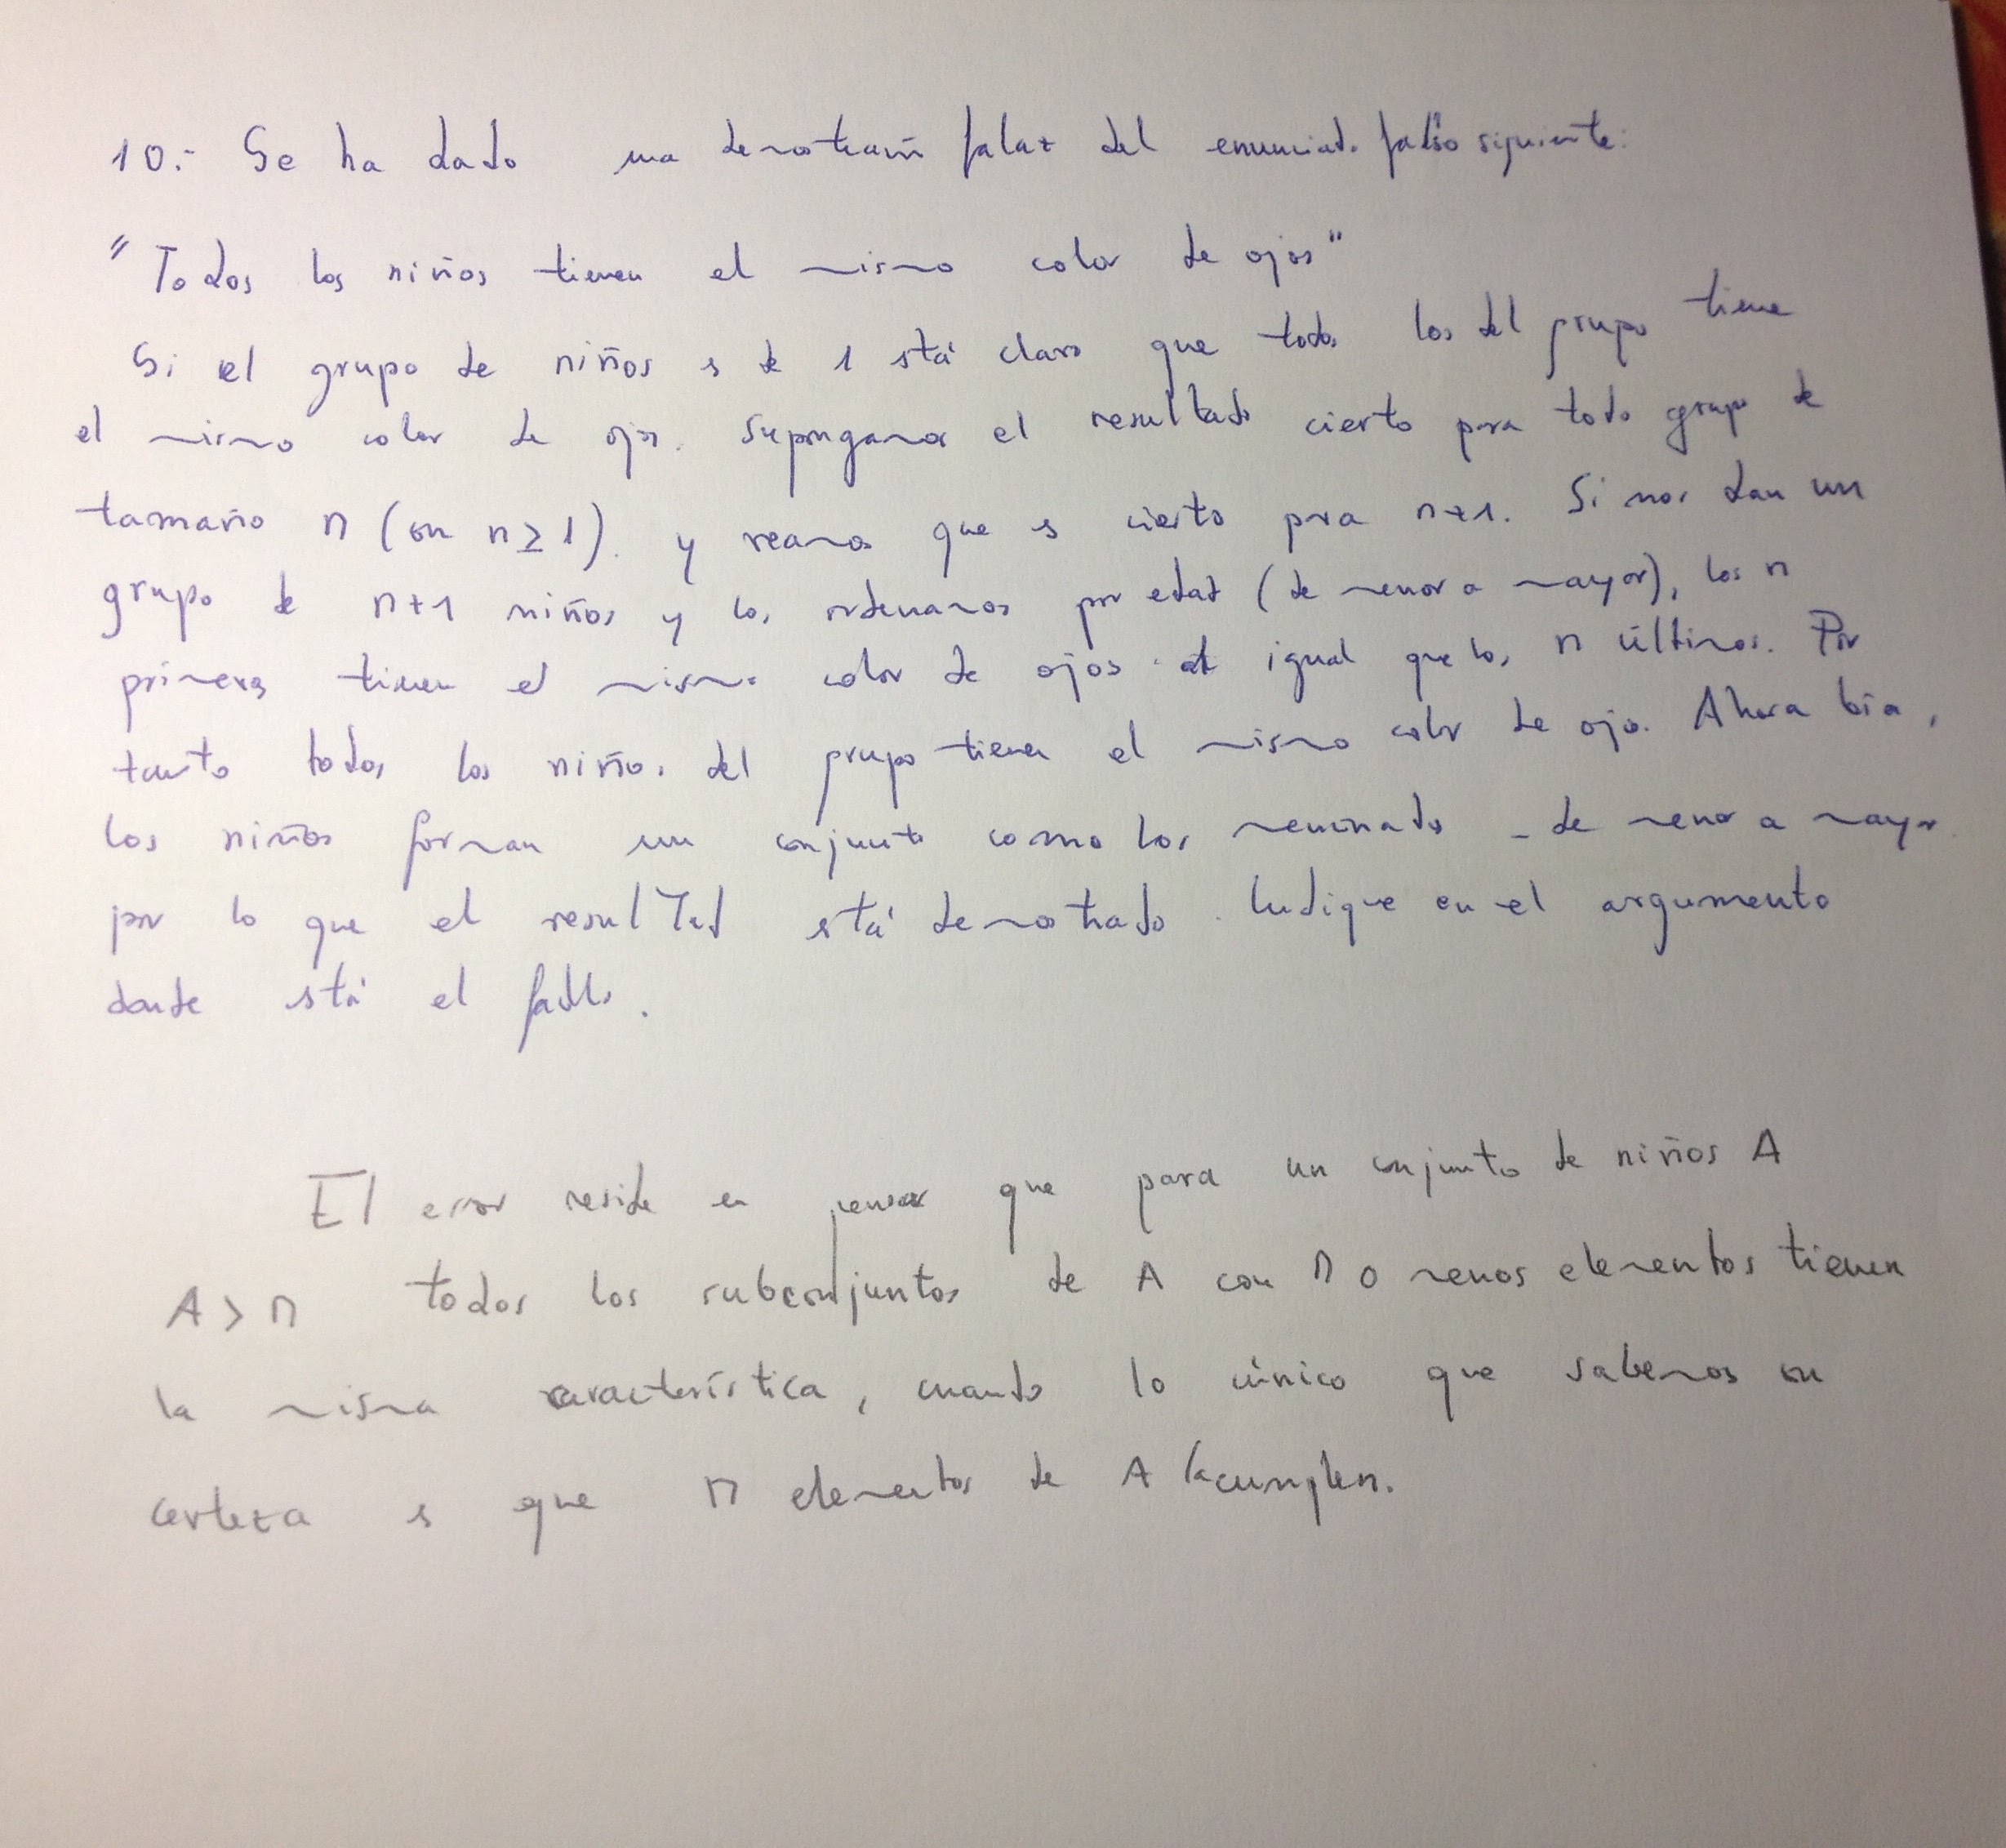 10.- Se ha dado una demostración falaz del enunciado falso siguiente:
"Todos los niños tienen el mismo color de ojos"
Si el grupo de niños es de 1 está claro que todos los del grupo tiene
el mismo color de ojos. Supongamos el resultado cierto para todo grupo de
tamaño n (con n ≥ 1). y veamos que es cierto para n+1. Si nos dan un
grupo de n+1 niños y los ordenamos por edad (de menor a mayor), los n
primeros tienen el mismo color de ojos al igual que los n últimos. Por
tanto todos los niños del grupo tienen el mismo color de ojos. Ahora bien,
los niños forman un conjunto como los mencionados - de menor a mayor
por lo que el resultado está demostrado. Indique en el argumento
donde está el fallo.
El error reside en pensar que para un conjunto de niños A
A > n todos los subconjuntos de A con n o menos elementos tienen
la misma característica, cuando lo único que sabemos con
certeza es que n elementos de A la cumplen.